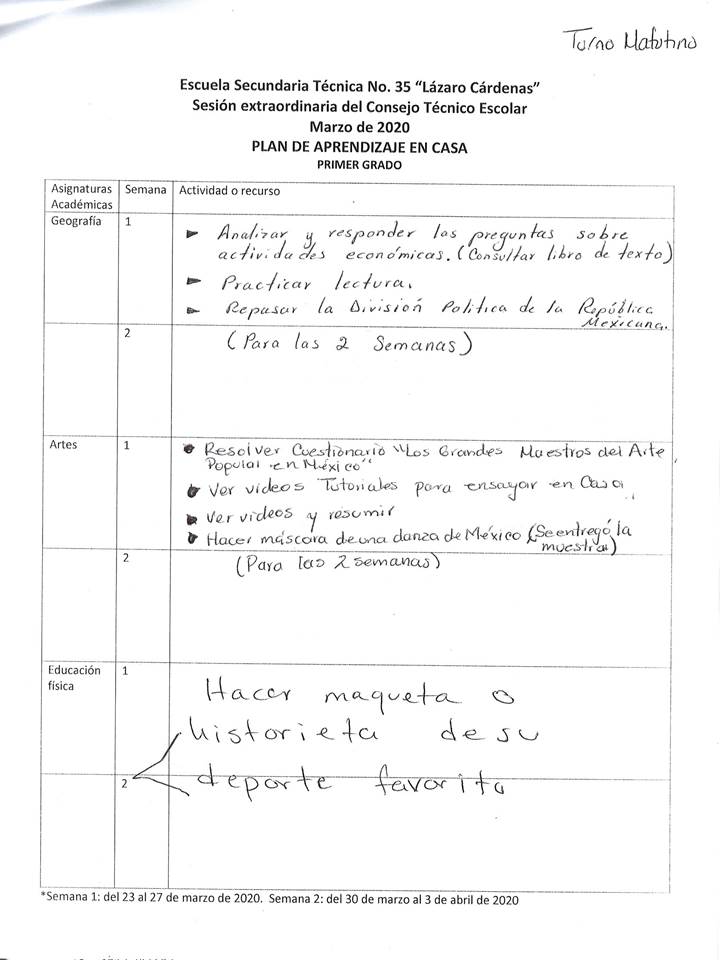 Turno Matutino
Escuela Secundaria Técnica No. 35 "Lázaro Cárdenas"
Sesión extraordinaria del Consejo Técnico Escolar
Marzo de 2020
PLAN DE APRENDIZAJE EN CASA
PRIMER GRADO
Asignaturas Académicas Semana Actividad o recurso
Geografía 1
Analizar y responder las preguntas sobre
actividades económicas. (Consultar libro de texto)
Practicar lectura.
Repasar la División Política de la República
Mexicana.
2 (Para las 2 Semanas)
Artes 1
Resolver Cuestionario "Los Grandes Maestros del Arte
Popular en México"
Ver videos Tutoriales para ensayar en Casa
Ver videos y resumir
Hacer máscara de una danza de México (Se entregó la
muestra)
2 (Para las 2 semanas)
Educación física 1
Hacer maqueta o
historieta de su
2 deporte favorito
*Semana 1: del 23 al 27 de marzo de 2020. Semana 2: del 30 de marzo al 3 de abril de 2020